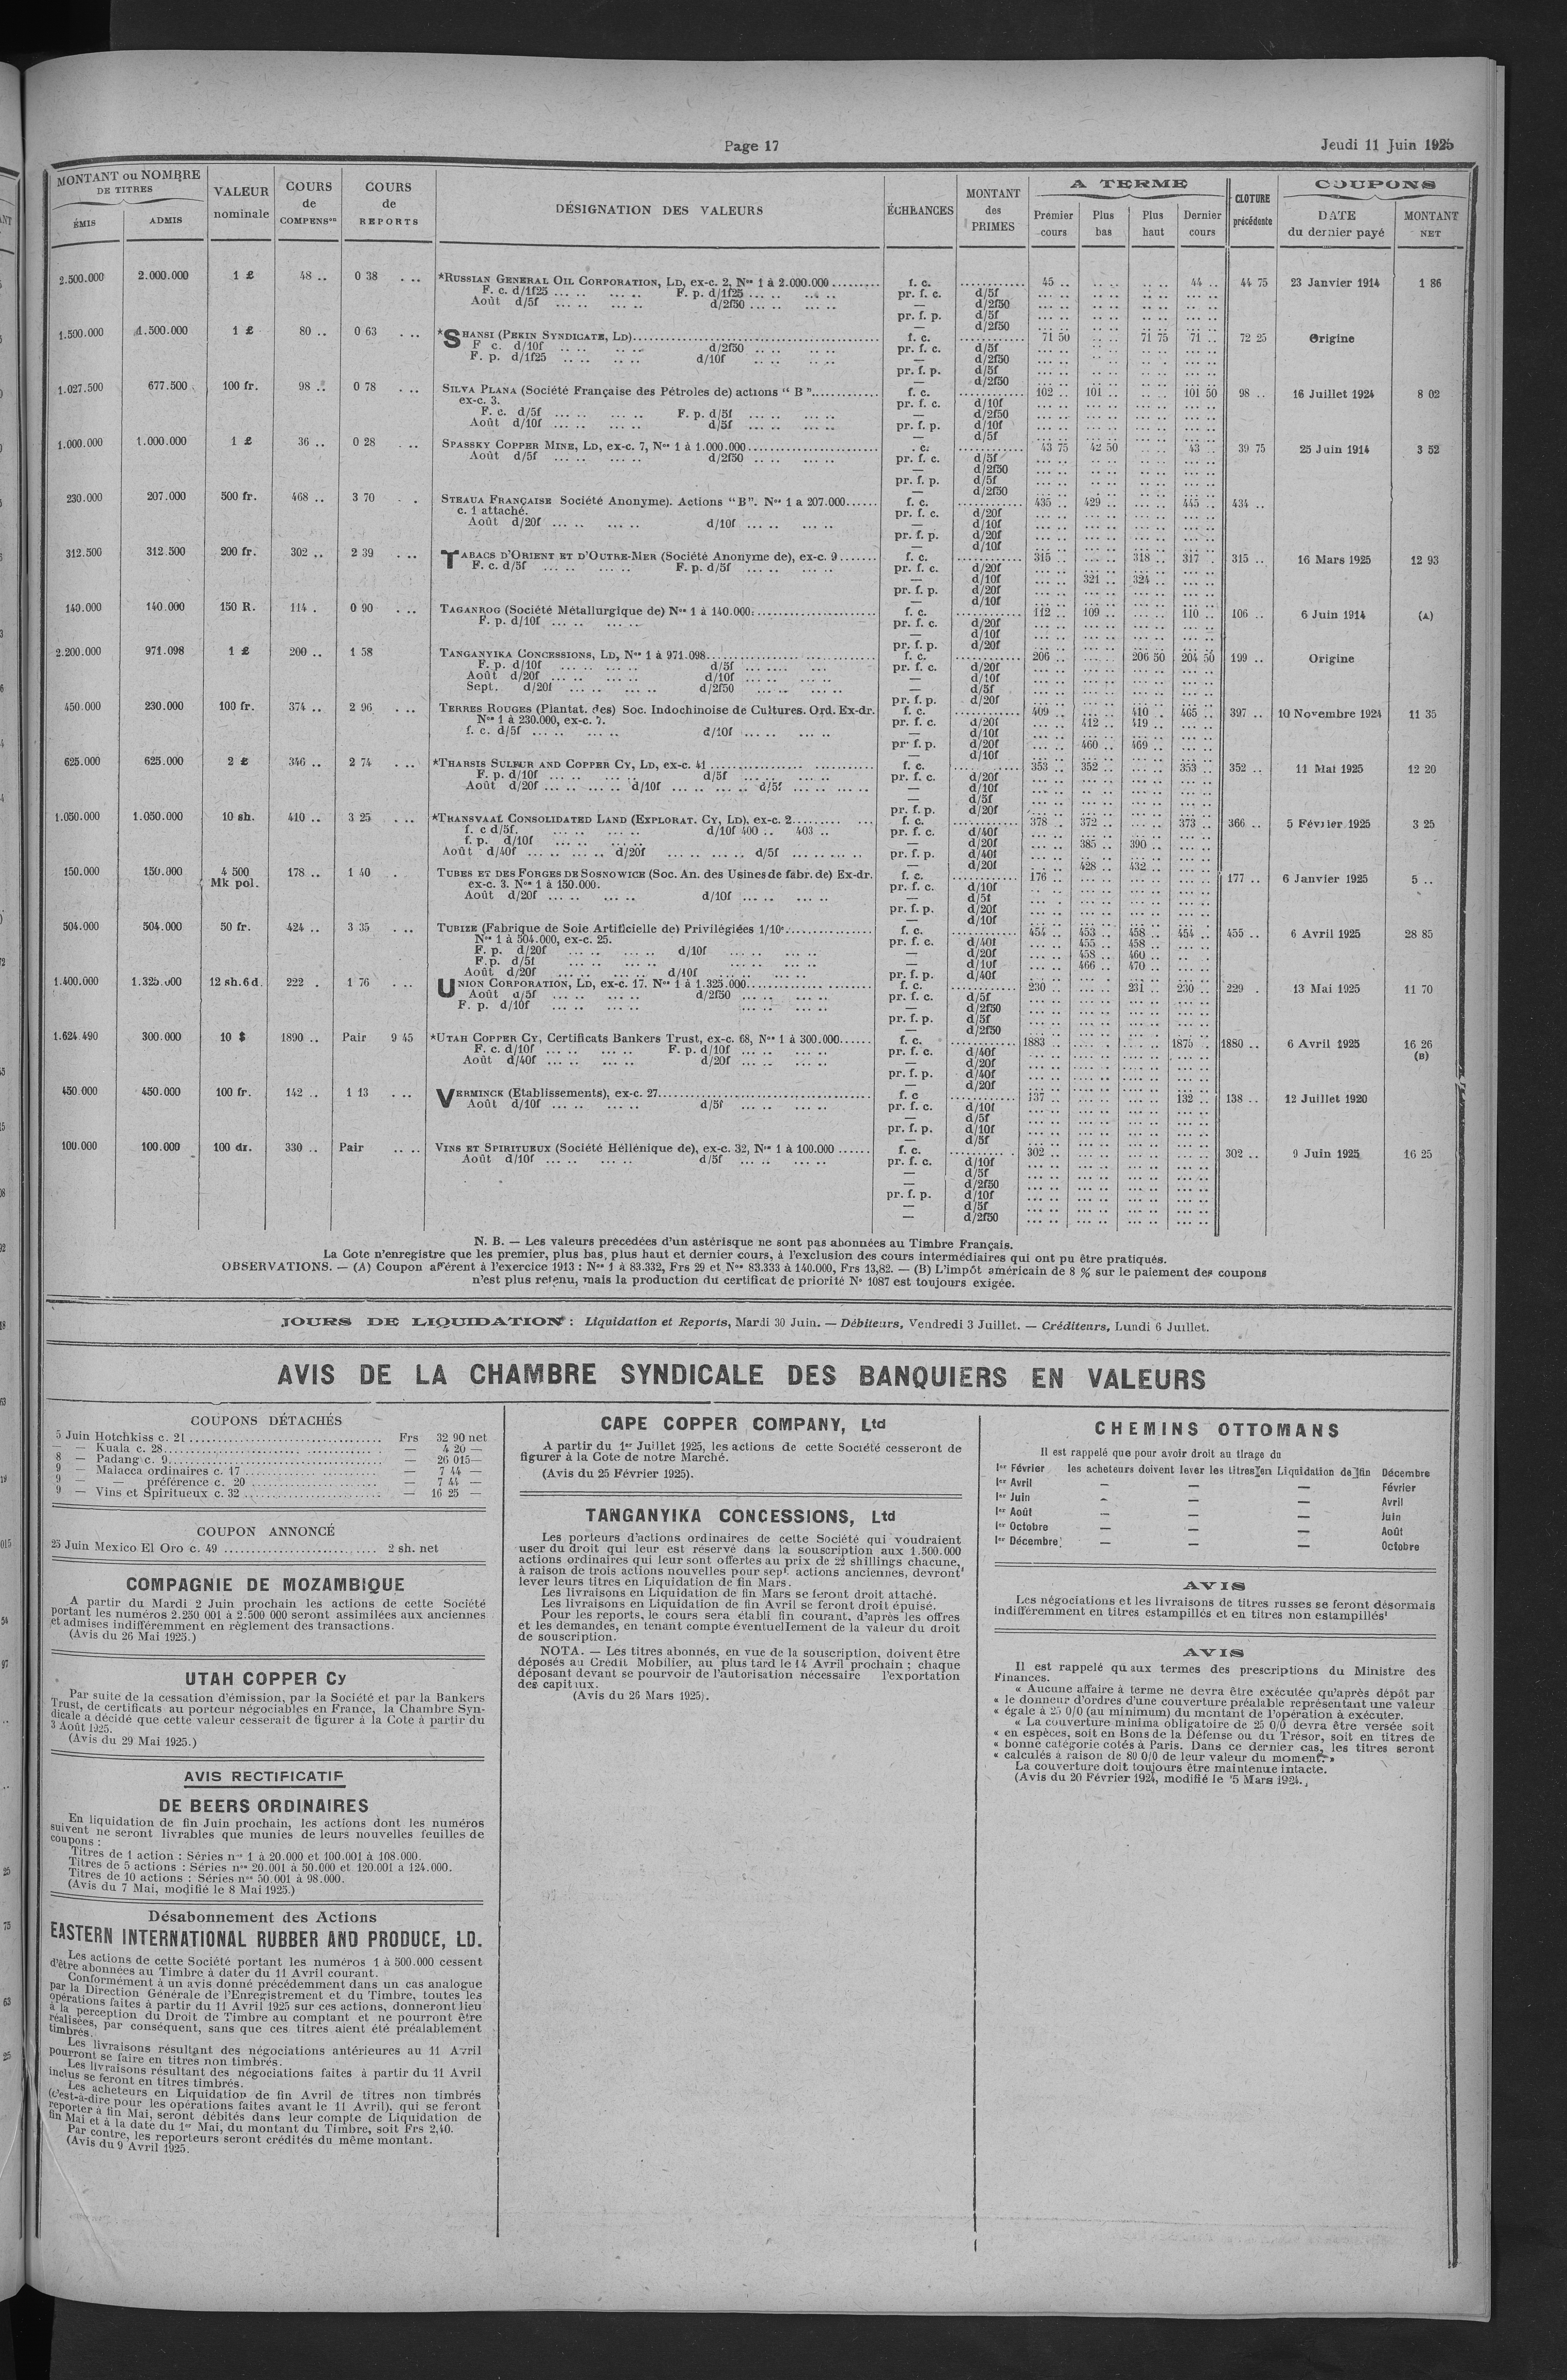 Page 17
Jeudi 11 Juin 1925
MONTANT ou NOMBRE DE TITRES
ÉMIS
ADMIS
VALEUR nominale
COURS de COMPENSon
COURS de REPORTS
DÉSIGNATION DES VALEURS
ÉCHÉANCES
MONTANT des PRIMES
A TERME
Premier cours
Plus bas
Plus haut
Dernier cours
CLOTURE précédente
COUPONS
DATE du dernier payé
MONTANT NET
2.500.000 2.000.000 1 £ 48 .. 0 38 . .. *RUSSIAN GENERAL OIL CORPORATION, LD, ex-c. 2, Nos 1 à 2.000.000 f. c. 45 .. 44 .. 44 75 23 Janvier 1914 1 86
F. c. d/1f25 ... .. ... .. F. p. d/1f25 ... .. ... .. pr. f. c. d/5f
Août d/5f ... .. ... .. d/2f50 ... .. ... .. — d/2f50
pr. f. p. d/5f
— d/2f50
1.500.000 1.500.000 1 £ 80 .. 0 63 . .. *SHANSI (PEKIN SYNDICATE, LD) f. c. 71 50 71 75 71 .. 72 25 Origine
F c. d/10f .. .. ... .. d/2f50 .. .. ... .. pr. f. c. d/5f
F. p. d/1f25 .. .. ... .. d/10f ... .. ... .. — d/2f50
pr. f. p. d/5f
— d/2f50
1.027.500 677.500 100 fr. 98 .. 0 78 . .. SILVA PLANA (Société Française des Pétroles de) actions “ B ” f. c. 102 .. 101 .. 101 50 98 .. 16 Juillet 1924 8 02
ex-c. 3. pr. f. c. d/10f
F. c. d/5f ... .. ... .. F. p. d/5f ... .. ... .. — d/2f50
Août d/10f ... .. ... .. d/5f ... .. ... .. pr. f. p. d/10f
— d/5f
1.000.000 1.000.000 1 £ 36 .. 0 28 . .. SPASSKY COPPER MINE, LD, ex-c. 7, Nos 1 à 1.000.000 . c. 43 75 42 50 43 .. 39 75 25 Juin 1914 3 52
Août d/5f ... .. ... .. d/2f50 .. .. ... .. pr. f. c. d/5f
— d/2f50
pr. f. p. d/5f
— d/2f50
230.000 207.000 500 fr. 468 .. 3 70 . . STEAUA FRANÇAISE Société Anonyme). Actions “B”. Nos 1 a 207.000 f. c. 435 .. 429 .. 445 .. 434 ..
c. 1 attaché. pr. f. c. d/20f
Août d/20f ... .. ... .. d/10f ... .. ... .. — d/10f
pr. f. p. d/20f
— d/10f
312.500 312.500 200 fr. 302 .. 2 39 . .. TABACS D'ORIENT ET D'OUTRE-MER (Société Anonyme de), ex-c. 9 f. c. 315 .. 318 .. 317 .. 315 .. 16 Mars 1925 12 93
F. c. d/5f ... .. ... .. F. p. d/5f ... .. ... .. pr. f. c. d/20f
— d/10f 321 .. 324 ..
pr. f. p. d/20f
— d/10f
140.000 140.000 150 R. 114 . 0 90 . .. TAGANROG (Société Métallurgique de) Nos 1 à 140.000. f. c. 112 .. 109 .. 110 .. 106 .. 6 Juin 1914 (A)
F. p. d/10f ... .. ... .. pr. f. c. d/20f
— d/10f
pr. f. p. d/20f
2.200.000 971.098 1 £ 200 .. 1 58 TANGANYIKA CONCESSIONS, LD, Nos 1 à 971.098 f. c. 206 .. 206 50 204 50 199 .. Origine
F. p. d/10f ... .. ... .. d/5f ... .. ... pr. f. c. d/20f
Août d/20f ... .. ... .. d/10f ... .. ... .. — d/10f
Sept. d/20f ... .. ... .. d/2f50 ... .. ... .. — d/5f
pr. f. p. d/20f
450.000 230.000 100 fr. 374 .. 2 96 . .. TERRES ROUGES (Plantat. des) Soc. Indochinoise de Cultures. Ord. Ex-dr. f. c. 409 .. 410 .. 465 .. 397 .. 10 Novembre 1924 11 35
Nos 1 à 230.000, ex-c. 7. pr. f. c. d/20f 412 .. 419 ..
f. c. d/5f ... .. ... .. d/10f ... .. ... .. — d/10f
pr. f. p. d/20f 460 .. 469 ..
— d/10f
625.000 625.000 2 £ 346 .. 2 74 . .. *THARSIS SULFUR AND COPPER CY, LD, ex-c. 41 f. c. 353 .. 352 .. 353 .. 352 .. 11 Mai 1925 12 20
F. p. d/10f ... .. ... .. d/5f ... .. ... .. pr. f. c. d/20f
Août d/20f ... .. ... .. d/10f ... .. ... .. d/5f ... .. ... .. — d/10f
— d/5f
pr. f. p. d/20f
1.050.000 1.050.000 10 sh. 410 .. 3 25 . .. *TRANSVAAL CONSOLIDATED LAND (EXPLORAT. CY, LD), ex-c. 2 f. c. 378 .. 372 .. 373 .. 366 .. 5 Février 1925 3 25
f. c d/5f. ... .. ... .. d/10f 400 .. 403 .. pr. f. c. d/40f
f. p. d/10f ... .. ... .. — d/20f 385 .. 390 ..
Août d/40f ... .. ... .. d/20f ... .. ... .. d/5f ... .. ... .. pr. f. p. d/40f
— d/20f 428 .. 432 ..
150.000 150.000 4 500 Mk pol. 178 .. 1 40 . TUBES ET DES FORGES DE SOSNOWICE (Soc. An. des Usines de fabr. de) Ex-dr. f. c. 176 .. 177 .. 6 Janvier 1925 5 ..
ex-c. 3. Nos 1 à 150.000. pr. f. c. d/10f
Août d/20f ... .. ... .. d/10f ... .. ... .. — d/5f
pr. f. p. d/20f
— d/10f
504.000 504.000 50 fr. 424 .. 3 35 . .. TUBIZE (Fabrique de Soie Artificielle de) Privilégiées 1/10e f. c. 454 .. 453 .. 458 .. 454 .. 455 .. 6 Avril 1925 28 85
Nos 1 à 504.000, ex-c. 25. pr. f. c. d/40f 455 .. 458 ..
F. p. d/20f ... .. ... .. d/10f ... .. ... .. — d/20f 458 .. 460 ..
F. p. d/5f ... .. ... .. — d/10f 466 .. 470 ..
Août d/20f ... .. ... .. d/10f ... .. ... .. pr. f. p. d/40f
1.400.000 1.325.000 12 sh. 6 d. 222 . 1 76 . .. UNION CORPORATION, LD, ex-c. 17. Nos 1 à 1.325.000 f. c. 230 .. 231 .. 230 .. 229 . 13 Mai 1925 11 70
Août d/5f ... .. ... .. d/2f50 ... .. ... .. pr. f. c. d/5f
F. p. d/10f ... .. ... .. — d/2f50
pr. f. p. d/5f
— d/2f50
1.624.490 300.000 10 $ 1890 .. Pair 9 45 *UTAH COPPER CY, Certificats Bankers Trust, ex-c. 68, Nos 1 à 300.000 f. c. 1883 .. 1875 .. 1880 .. 6 Avril 1925 16 26 (B)
F. c. d/10f ... .. ... .. F. p. d/10f ... .. ... .. pr. f. c. d/40f
Août d/40f ... .. ... .. d/20f ... .. ... .. — d/20f
pr. f. p. d/40f
— d/20f
450.000 450.000 100 fr. 142 .. 1 13 . .. VERMINCK (Etablissements), ex-c. 27 f. c 137 .. 132 .. 138 .. 12 Juillet 1920
Août d/10f ... .. ... .. d/5f ... .. ... .. pr. f. c. d/10f
— d/5f
pr. f. p. d/10f
— d/5f
100.000 100.000 100 dr. 330 .. Pair .. .. VINS ET SPIRITUEUX (Société Héllénique de), ex-c. 32, Nos 1 à 100.000 f. c. 302 .. 302 .. 9 Juin 1925 16 25
Août d/10f ... .. ... .. d/5f ... .. ... .. pr. f. c. d/10f
— d/5f
— d/2f50
pr. f. p. d/10f
— d/5f
— d/2f50
N. B. — Les valeurs précédées d'un astérisque ne sont pas abonnées au Timbre Français.
La Cote n'enregistre que les premier, plus bas, plus haut et dernier cours, à l'exclusion des cours intermédiaires qui ont pu être pratiqués.
OBSERVATIONS. — (A) Coupon afférent à l'exercice 1913 : Nos 1 à 83.332, Frs 29 et Nos 83.333 à 140.000, Frs 13,82. — (B) L'impôt américain de 8 % sur le paiement des coupons
n'est plus retenu, mais la production du certificat de priorité No 1087 est toujours exigée.
JOURS DE LIQUIDATION : Liquidation et Reports, Mardi 30 Juin. — Débiteurs, Vendredi 3 Juillet. — Créditeurs, Lundi 6 Juillet.
AVIS DE LA CHAMBRE SYNDICALE DES BANQUIERS EN VALEURS
COUPONS DÉTACHÉS
5 Juin Hotchkiss c. 21 Frs 32 90 net
— — Kuala c. 28 — 4 20 —
8 — Padang c. 9 — 26 015 —
9 — Malacca ordinaires c. 17 — 7 44 —
9 — — préférence c. 20 — 7 44 —
9 — Vins et Spiritueux c. 32 — 16 25 —
COUPON ANNONCÉ
25 Juin Mexico El Oro c. 49 2 sh. net
COMPAGNIE DE MOZAMBIQUE
A partir du Mardi 2 Juin prochain les actions de cette Société
portant les numéros 2.250 001 à 2.500 000 seront assimilées aux anciennes
et admises indifféremment en règlement des transactions.
(Avis du 26 Mai 1925.)
UTAH COPPER Cy
Par suite de la cessation d'émission, par la Société et par la Bankers
Trust, de certificats au porteur négociables en France, la Chambre Syn-
dicale a décidé que cette valeur cesserait de figurer à la Cote à partir du
3 Août 1925.
(Avis du 29 Mai 1925.)
AVIS RECTIFICATIF
DE BEERS ORDINAIRES
En liquidation de fin Juin prochain, les actions dont les numéros
suivent ne seront livrables que munies de leurs nouvelles feuilles de
coupons :
Titres de 1 action : Séries nos 1 à 20.000 et 100.001 à 108.000.
Titres de 5 actions : Séries nos 20.001 à 50.000 et 120.001 à 124.000.
Titres de 10 actions : Séries nos 50.001 à 98.000.
(Avis du 7 Mai, modifié le 8 Mai 1925.)
Désabonnement des Actions
EASTERN INTERNATIONAL RUBBER AND PRODUCE, LD.
Les actions de cette Société portant les numéros 1 à 500.000 cessent
d'être abonnées au Timbre à dater du 11 Avril courant.
Conformément à un avis donné précédemment dans un cas analogue
par la Direction Générale de l'Enregistrement et du Timbre, toutes les
opérations faites à partir du 11 Avril 1925 sur ces actions, donneront lieu
à la perception du Droit de Timbre au comptant et ne pourront être
réalisées, par conséquent, sans que ces titres aient été préalablement
timbrés.
Les livraisons résultant des négociations antérieures au 11 Avril
pourront se faire en titres non timbrés.
Les livraisons résultant des négociations faites à partir du 11 Avril
inclus se feront en titres timbrés.
Les acheteurs en Liquidation de fin Avril de titres non timbrés
(c'est-à-dire pour les opérations faites avant le 11 Avril), qui se feront
reporter à fin Mai, seront débités dans leur compte de Liquidation de
fin Mai et à la date du 1er Mai, du montant du Timbre, soit Frs 2,40.
Par contre, les reporteurs seront crédités du même montant.
(Avis du 9 Avril 1925.
CAPE COPPER COMPANY, Ltd
A partir du 1er Juillet 1925, les actions de cette Société cesseront de
figurer à la Cote de notre Marché.
(Avis du 25 Février 1925).
TANGANYIKA CONCESSIONS, Ltd
Les porteurs d'actions ordinaires de cette Société qui voudraient
user du droit qui leur est réservé dans la souscription aux 1.500.000
actions ordinaires qui leur sont offertes au prix de 22 shillings chacune,
à raison de trois actions nouvelles pour sept actions anciennes, devront
lever leurs titres en Liquidation de fin Mars.
Les livraisons en Liquidation de fin Mars se feront droit attaché.
Les livraisons en Liquidation de fin Avril se feront droit épuisé.
Pour les reports, le cours sera établi fin courant, d'après les offres
et les demandes, en tenant compte éventuellement de la valeur du droit
de souscription.
NOTA. — Les titres abonnés, en vue de la souscription, doivent être
déposés au Crédit Mobilier, au plus tard le 14 Avril prochain ; chaque
déposant devant se pourvoir de l'autorisation nécessaire l'exportation
des capitaux.
(Avis du 26 Mars 1925).
CHEMINS OTTOMANS
Il est rappelé que pour avoir droit au tirage du
1er Février les acheteurs doivent lever les titres en Liquidation de fin Décembre
1er Avril — — — Février
1er Juin — — — Avril
1er Août — — — Juin
1er Octobre — — — Août
1er Décembre — — — Octobre
AVIS
Les négociations et les livraisons de titres russes se feront désormais
indifféremment en titres estampillés et en titres non estampillés
AVIS
Il est rappelé qu'aux termes des prescriptions du Ministre des
Finances.
« Aucune affaire à terme ne devra être exécutée qu'après dépôt par
« le donneur d'ordres d'une couverture préalable représentant une valeur
« égale à 25 0/0 (au minimum) du montant de l'opération à exécuter.
« La couverture minima obligatoire de 25 0/0 devra être versée soit
« en espèces, soit en Bons de la Défense ou du Trésor, soit en titres de
« bonne catégorie cotés à Paris. Dans ce dernier cas, les titres seront
« calculés à raison de 80 0/0 de leur valeur du moment. »
La couverture doit toujours être maintenue intacte.
(Avis du 20 Février 1924, modifié le 5 Mars 1924.)